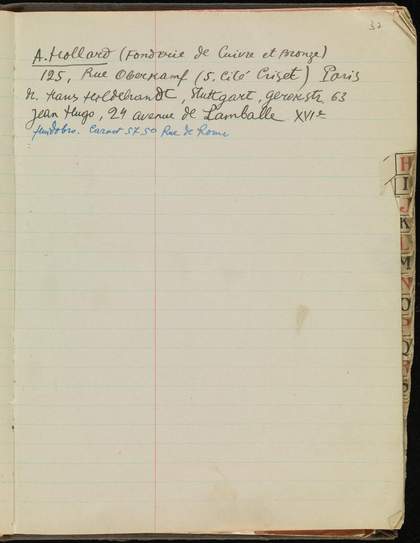 32
A. Hollard (Fonderie de Cuivre et Bronze)
125, Rue Oberkampf (5, Cité Griset) Paris
Hans Hildebrandt, Stuttgart, Gerokstr. 63
Jean Hugo, 24 avenue de Lamballe XVIe
Carnot 57.50 Rue de Rome
H
I
J
K
L
M
N
O
P
Q
R
S